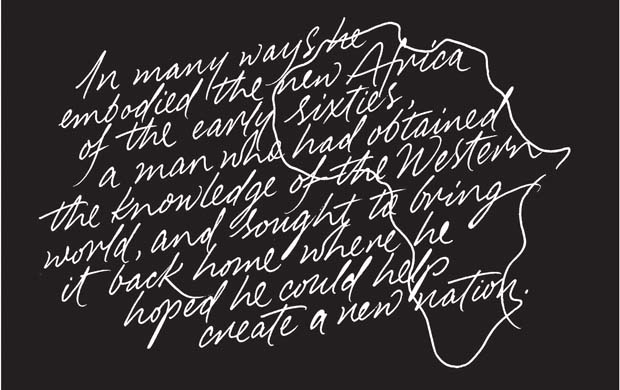 In many ways he
embodied the new Africa
of the early sixties,
a man who had obtained
the knowledge of the Western
world, and sought to bring
it back home where he
hoped he could help
create a new nation.